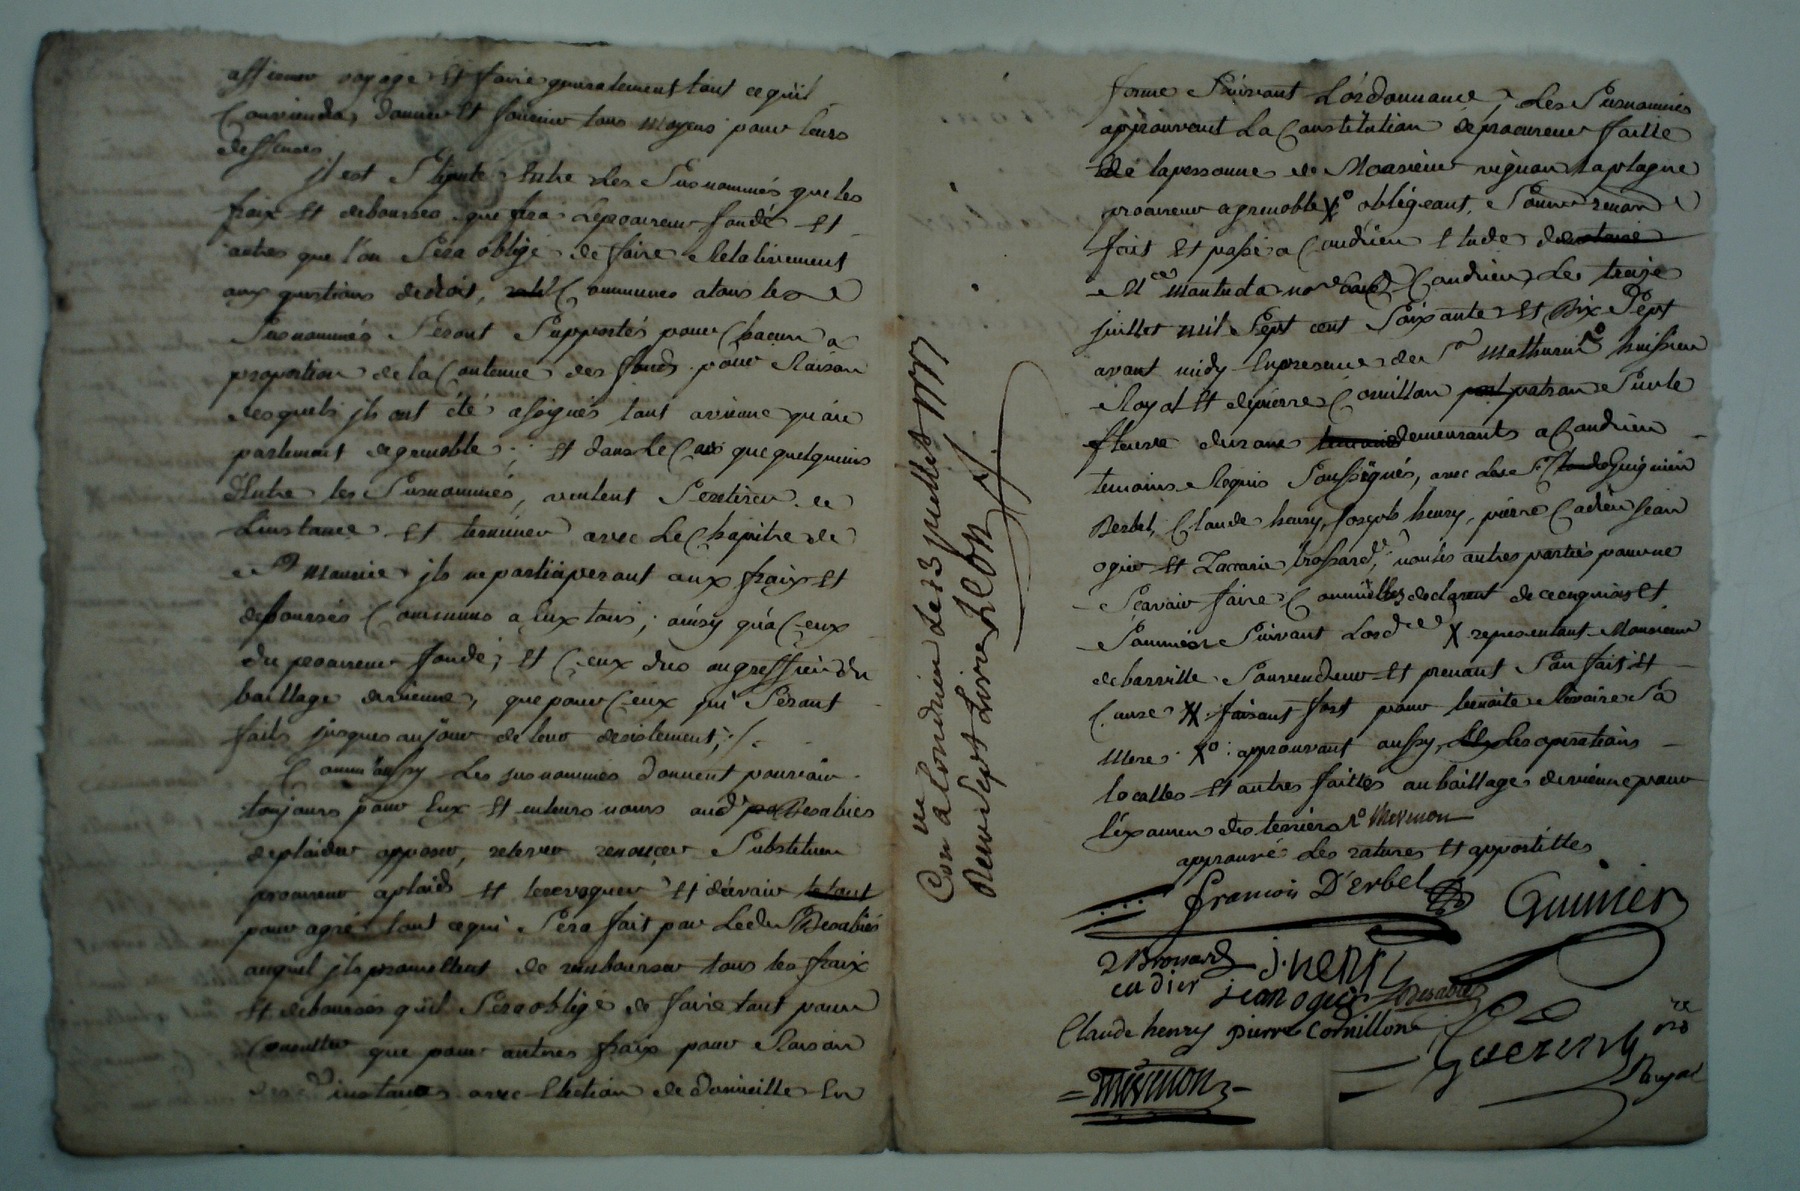 affirmer voyage Et faire generalement tout ce qu'il
Conviendra, donner Et fournir tous moyens pour leurs
deffenses
il est Stipulé Entre Les Susnommés que les
fraix Et debourses que fera Le procureur fondé Et
autres que l'on Sera obligé de faire Relativement
aux questions de droit, Communes a tous les
Susnommés Seront Supportés pour Chacun a
proportion de la Contenue des fonds pour Raison
desquels ils ont été assignés tant a vienne qu'au
parlement de grenoble; Et dans Le Cas que quelqu'uns
d'Entre les Susnommés, veulent Se retirer de
L'instance Et terminer avec Le Chapitre de
St Maurice ils ne participeront aux fraix Et
debourses Communs a Eux tous; ainsy qu'a Ceux
du procureur fondé; Et Ceux dus au greffier du
baillage de vienne, que pour Ceux qui Seront
faits jusques au jour de leur desistement;/.
Comm'aussy Les susnommés donnent pouvoir
toujours pour Eux Et en leurs noms aud. Sr Desabies
de plaider opposer, relever renoncer Substituer
procureur a plaids Et le revoquer Et d'avoir le tout
pour agré tout ce qui Sera fait par Ledit Sr Desabies
auquel ils promettent de rembourser tous les fraix
Et debourses qu'il Sera obligé de faire tant pour
Consulter que pour autres fraix pour Raison
desd. instances avec Election de domicille En
Con.lle a Condrieu Le 23 juillet 1777
Reçu Sept Livres
forme Suivant L'ordonnance, Les Susnommés
approuvent La Constitution de procureur faitte
de la personne de Monsieur vignon laplagne
procureur a grenoble Xo obligeant, Soum. renon.
fait Et passé a Condrieu Etude de notaire
Me mantuda nore Condrieu, Le treize
juillet mil Sept cent Soixante Et Dix Sept
avant midy En presence de Sr mathurin huissier
Royal Et de pierre Cornillon patron Sur le
fleuve du rone demeurants a Condrieu
temoins Requis Soussignés, avec Les Srs Guignier
Derbel, Claude henry, Joseph henry, pierre Cadier jean
ogier Et Zacarie brossard, non les autres parties pour ne
Scavoir faire Comm'elles declarent de ce enquises Et
Sommées Suivant L'ord.ce X representant Monsieur
de barville Son vendeur Et prenant Son fait Et
Cause XX faisant fort pour benoite Sa
Mere Xo approuvant aussy Les operations
locales Et autres faittes au baillage de vienne pour
l'examen des terriers Mermon
approuvé Les ratures Et appostilles
francois D'erbel
Guinier
Z Brossard
j. henry
cadier
jean ogier
Desabies
Claude henry pierre Cornillon
Guerin
nore
Royal
Mermon